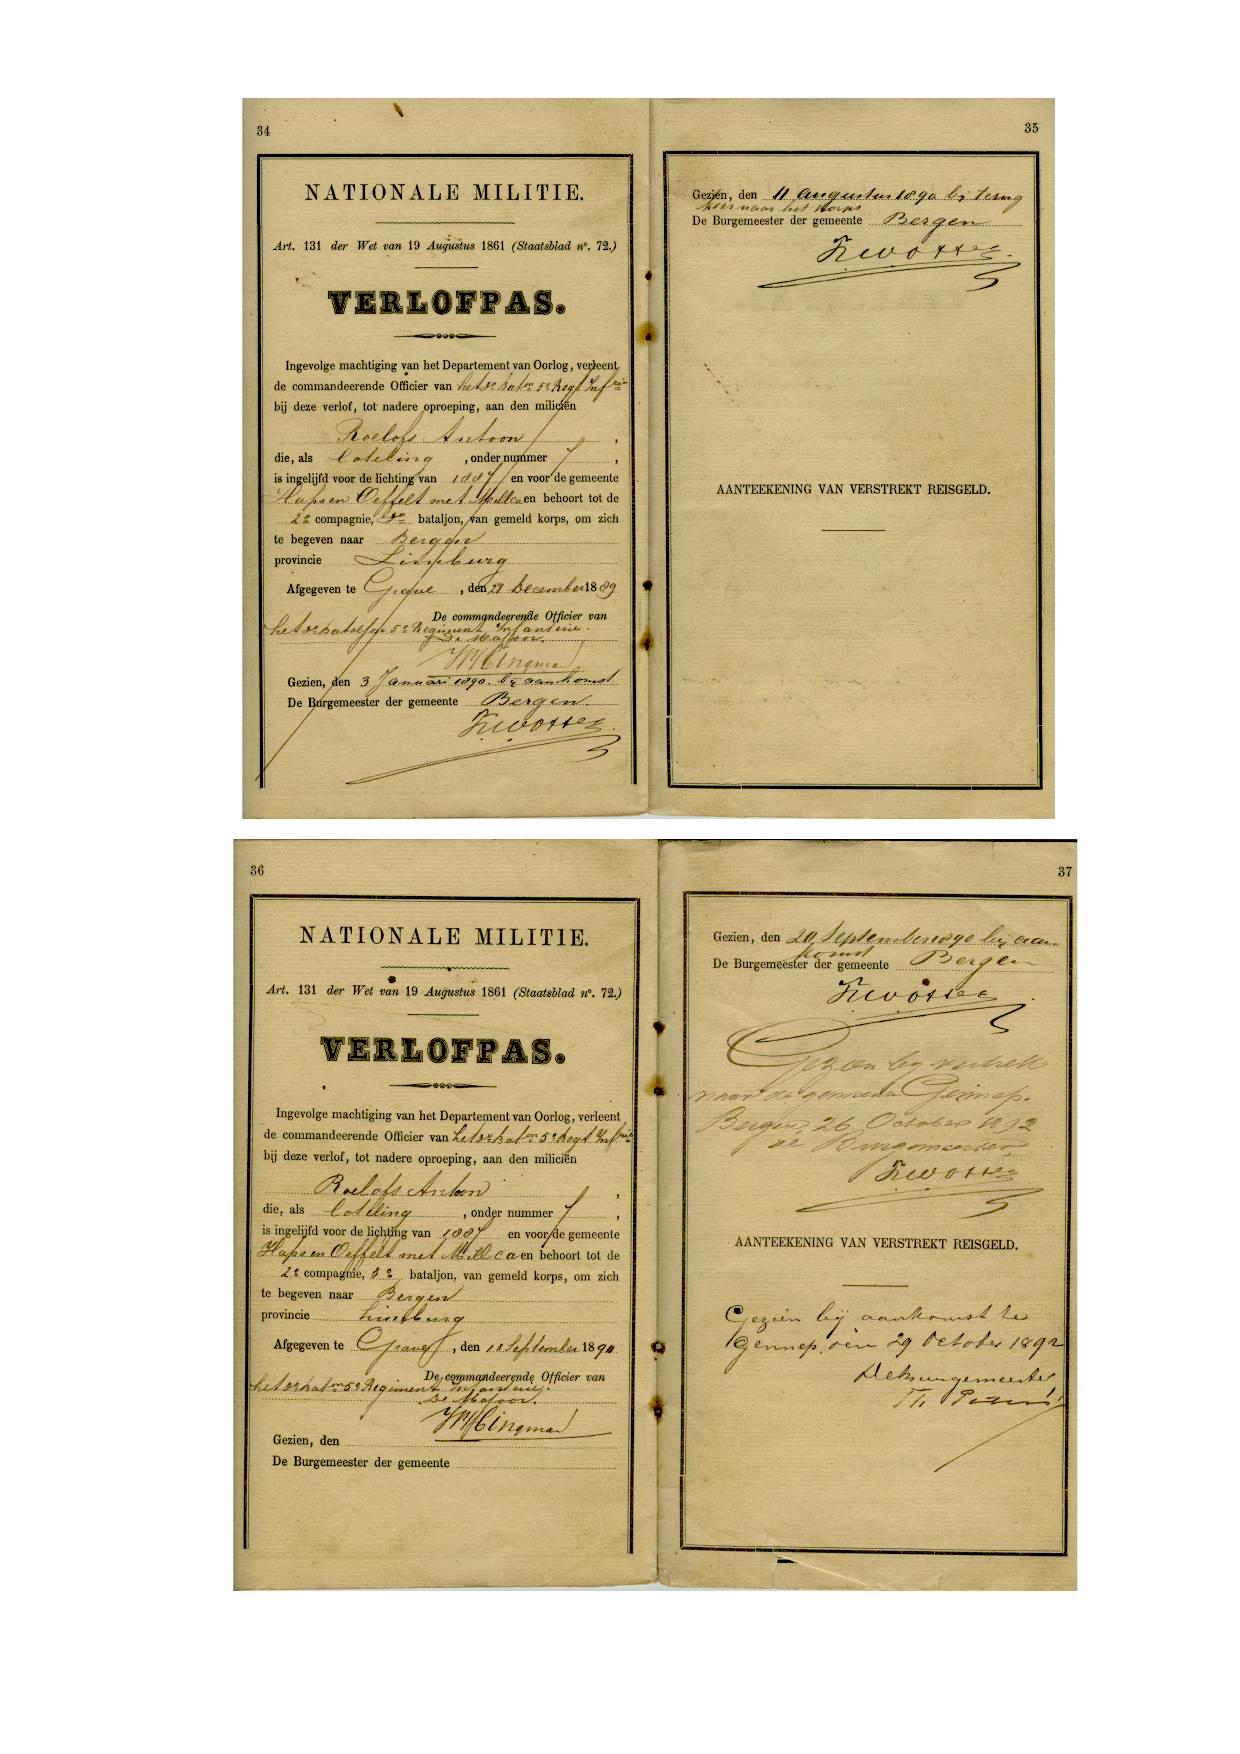 34
NATIONALE MILITIE.
Art. 131 der Wet van 19 Augustus 1861 (Staatsblad nº. 72.)
VERLOFPAS.
Ingevolge machtiging van het Departement van Oorlog, verleent
de commandeerende Officier van het 3e baton 5e Regt Infrie
bij deze verlof, tot nadere oproeping, aan den milicien
Roelofs Antoon ,
die, als loteling , onder nummer 7 ,
is ingelijfd voor de lichting van 1887 en voor de gemeente
Haps en Oeffelt met Mill ca en behoort tot de
2e compagnie, 3e bataljon, van gemeld korps, om zich
te begeven naar Bergen
provincie Limburg
Afgegeven te Grave , den December 1889
De commandeerende Officier van
het 3e bataljon 5e Regiment Infanterie.
De Majoor.
Gezien, den 3 Januari 1890. bij aankomst
De Burgemeester der gemeente Bergen.
35
Gezien, den 11 augustus 1890 bij terug
keer naar het Korps
De Burgemeester der gemeente Bergen
AANTEEKENING VAN VERSTREKT REISGELD.
36
NATIONALE MILITIE.
Art. 131 der Wet van 19 Augustus 1861 (Staatsblad nº. 72.)
VERLOFPAS.
Ingevolge machtiging van het Departement van Oorlog, verleent
de commandeerende Officier van het 3e baton 5e Regt Infrie
bij deze verlof, tot nadere oproeping, aan den milicien
Roelofs Antoon ,
die, als loteling , onder nummer 7 ,
is ingelijfd voor de lichting van 1887 en voor de gemeente
Haps en Oeffelt met Mill ca en behoort tot de
2e compagnie, 3e bataljon, van gemeld korps, om zich
te begeven naar Bergen
provincie Limburg
Afgegeven te Grave , den September 1890.
De commandeerende Officier van
het 3e baton 5e Regiment Infanterie.
De Majoor.
Gezien, den
De Burgemeester der gemeente
37
Gezien, den 20 September 1890 bij aan
komst
De Burgemeester der gemeente Bergen
Gezien bij vertrek
naar de gemeente Gennep.
Bergen, 26 October 1892
de Burgemeester,
AANTEEKENING VAN VERSTREKT REISGELD.
Gezien bij aankomst te
Gennep, den 29 October 1892
De burgemeester